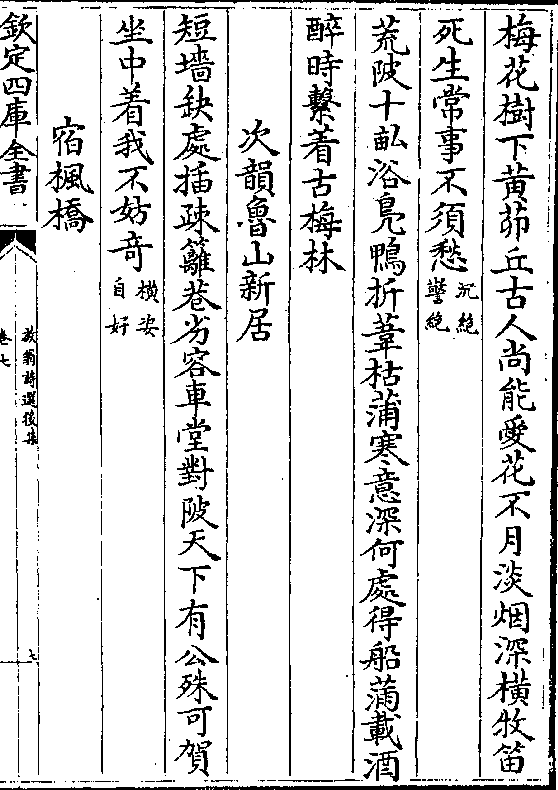 梅花樹下黄茆丘古人尚能愛花不月淡烟深横牧笛
死生常事不須愁沉絶
鑾絶
荒陂十畝浴鳬鴨折葦枯蒲寒意深何處得船滿載酒
醉時繫着古梅林
次韻魯山新居
短墻缺處插疎籬巷劣容車堂對陂天下有公殊可賀
坐中着我不妨竒横姿
自好
宿楓橋
欽定四庫全書
放翁詩選後集
卷七
七